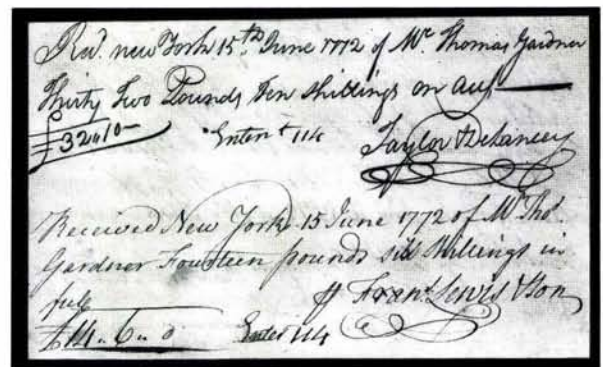 Recd. new York 15th June 1772 of Mr. Thomas Gardner
Thirty Two Pounds ten shillings on
£32"10-
Enterd 114
Taylor & Delancey
Received New York 15 June 1772 of Mr Thos.
Gardner Fourteen pounds six shillings in
full
Fran.s Lewis & Son
£14..6..0
Enter 114